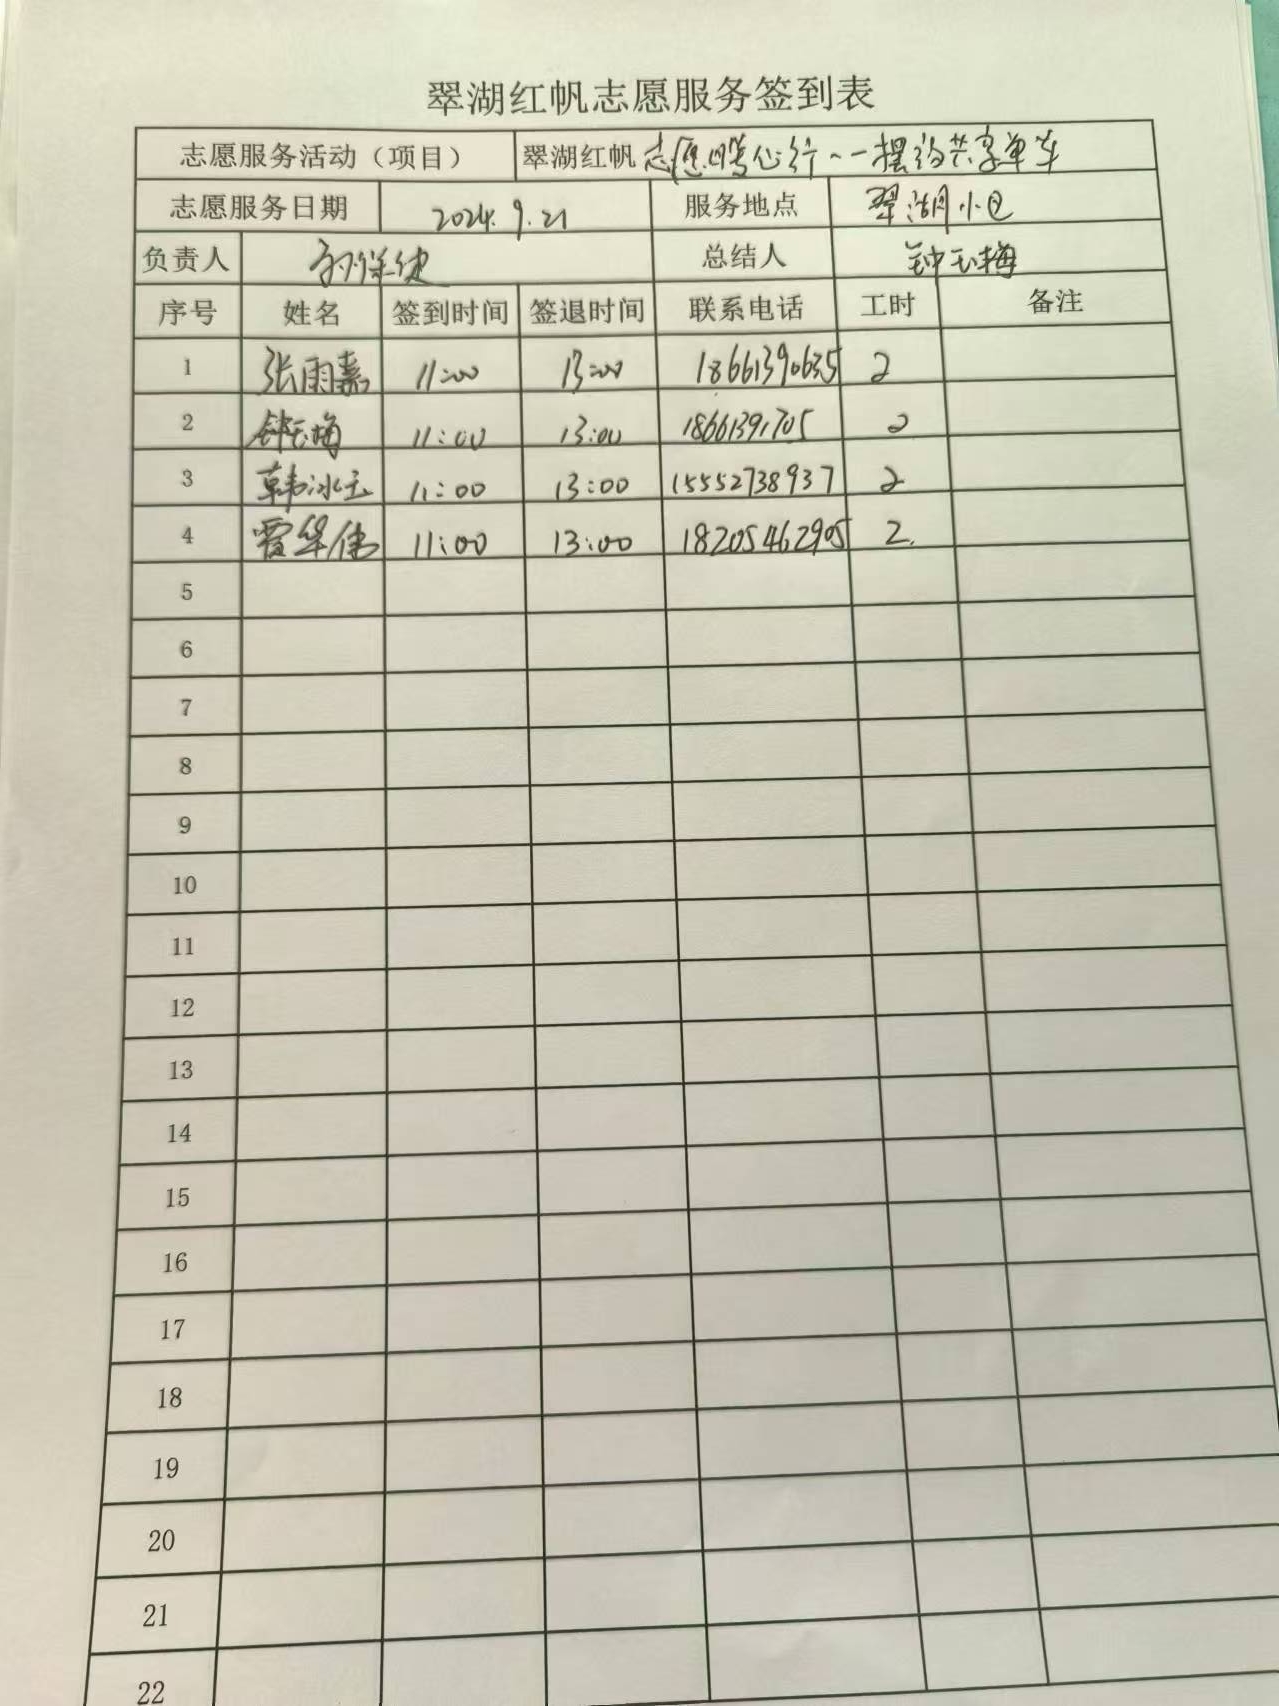 翠湖红帆志愿服务签到表
志愿服务活动（项目） 翠湖红帆志愿暖心行——摆放共享单车
志愿服务日期 2024.9.21 服务地点 翠湖小区
负责人 总结人 钟玉梅
序号 姓名 签到时间 签退时间 联系电话 工时 备注
1 张雨嘉 11:00 13:00 18661390635 2
2 钟玉梅 11:00 13:00 18661391705 2
3 韩冰玉 11:00 13:00 15552738937 2
4 霍华伟 11:00 13:00 18205462905 2.
5
6
7
8
9
10
11
12
13
14
15
16
17
18
19
20
21
22